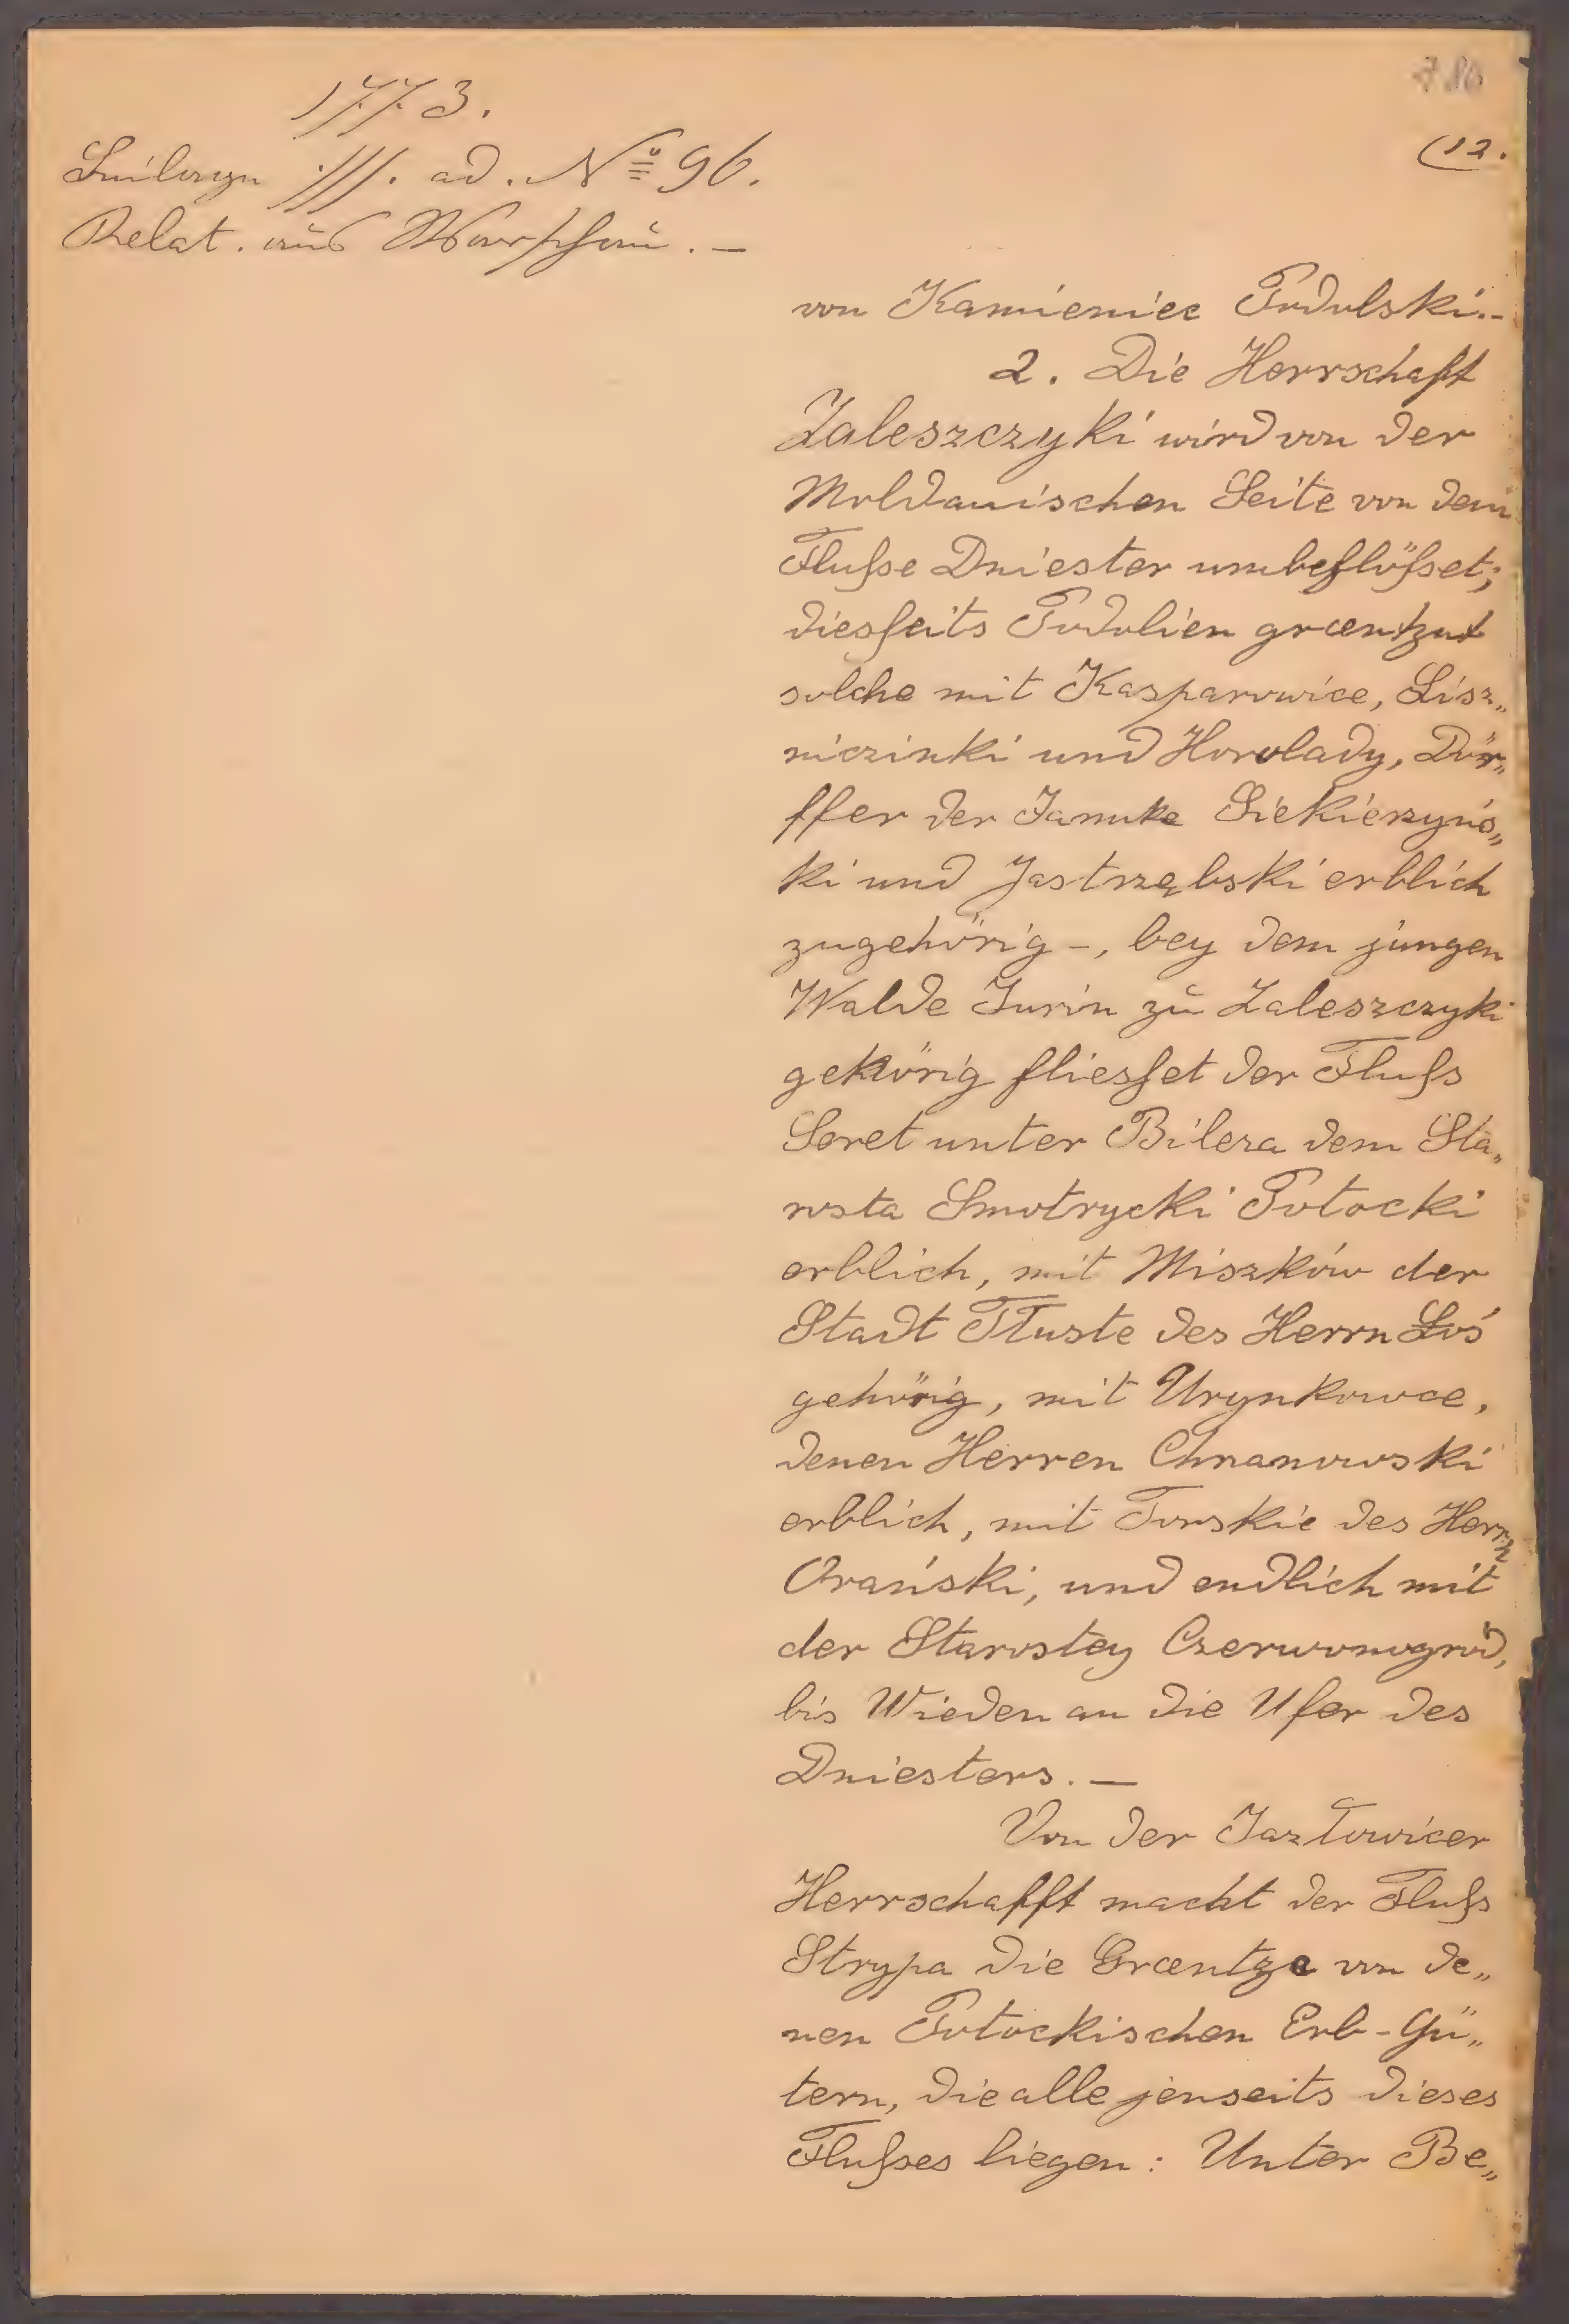 1773.
780
(12.
Beilage ·///. ad. No 96.
Relat. aus Warschau. —
von Kamieniec Podolski. -
2. Die Herrschafft
Zaleszczyki wird von der
Moldauischen Seite von dem
Flusse Dniester umbeflösset;
diesseits Podolien græntzet
solche mit Kasparowice, Lisz„
niczinki und Horolady, Dör„
ffer der Januke Siekierzyńs„
ki und Jastrzębski erblich
zugehörig -, bey dem jungen
Walde Jurin zu Zaleszczyki
gehörig fliesset der Fluss
Seret unter Bilcza dem Sta„
rosta Smotrycki Potocki
erblich, mit Miszków der
Stadt Tłuste des Herrn Łoś
gehörig, mit Urynkowce,
denen Herren Chrzanowski
erblich, mit Torskie des Herrn
Orański, und endlich mit
der Starostey Czerwonogrod,
bis Wieden an die Ufer des
Dniesters. —
Von der Jazłowicer
Herrschafft macht der Fluss
Strypa die Græntze von de„
nen Potockischen Erb-Gü„
tern, die alle jenseits dieses
Flusses liegen: Unter Be„